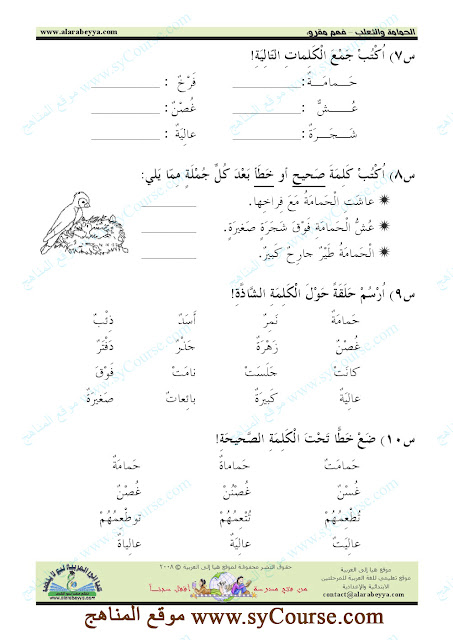 الحمامة والثعلب - فهم مقروء www.alarabeyya.com
س٧) اُكْتُبْ جَمْعَ الْكَلِماتِ التالِيَةِ!
حَـــمامَـــةٌ: ____________ فَرْخٌ : ____________
عُـــــشٌّ : ____________ غُصْنٌ: ____________
شَـــجَـــرَةٌ: ____________ عالِيَةٌ : ____________
س٨) اُكْتُبْ كَلِمَةَ صَحيح أو خَطَأ بَعْدَ كُلِّ جُمْلَةٍ مِمّا يَلي:
✷ عاشَتِ الْحَمامَةُ مَعَ فِراخِها. ________
✷ عُشُّ الْحَمامَةِ فَوْقَ شَجَرَةٍ صَغيرَةٍ. ________
✷ الْحَمامَةُ طَيْرٌ جارِحٌ كَبيرٌ. ________
س٩) اُرْسُمْ حَلَقَةً حَوْلَ الْكَلِمَةِ الشّاذَّةِ!
حَمامَةٌ نَمِرٌ أَسَدٌ ذِئْبٌ
غُصْنٌ زَهْرَةٌ جَذْرٌ دَفْتَرٌ
كانَتْ جَلَسَتْ نامَتْ فَوْقَ
عالِيَةٌ كَبيرَةٌ بائِعاتٌ صَغيرَةٌ
س١٠) ضَعْ خَطًّا تَحْتَ الْكَلِمَةِ الصَّحيحَةِ!
حَمامَتٌ حَماماةٌ حَمامَةٌ
غُسْنٌ غُصْنُنْ غُصْنٌ
تُطْعِمُهُمْ تُتْعِمُهُمْ توطْعِمُهُمْ
عالِيَتٌ عالِيَةٌ عالِياةٌ
موقع هيا إلى العربية
موقع تعليمي للغة العربية للمرحلتين
الابتدائية والإعدادية
contact@alarabeyya.com
حقوق النشر محفوظة لموقع هيا إلى العربية © ٢٠٠٨
من فتح مدرسة أقفل سجنًا
www.alarabeyya.com
موقع المناهج www.syCourse.com